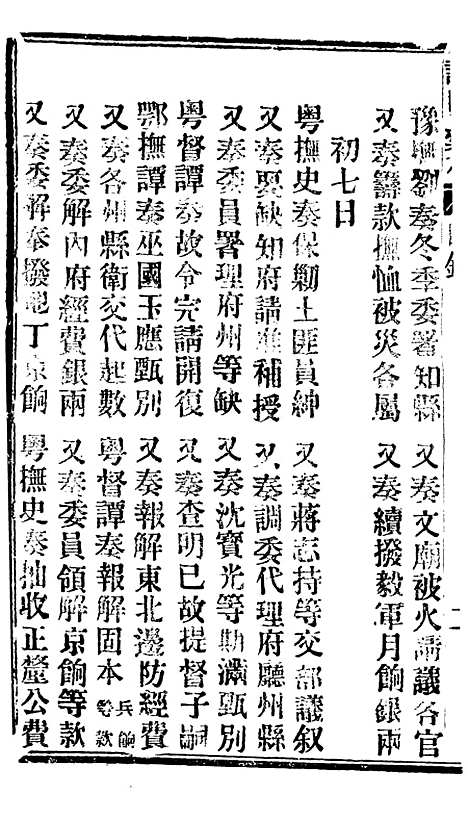 豫撫劉奏冬季委署知縣　又奏文廟被火請議各官
又奏籌款撫恤被災各屬　又奏續撥毅軍月餉銀兩
初七日
粵撫史奏保勦土匪員紳　又奏蔣志持等交部議叙
又奏要缺知府請准補授　又奏調委代理府廳州縣
又奏委員署理府州等缺　又奏沈寳光等期滿甄別
粵督譚奏故令完請開復　又奏查明已故提督子嗣
鄂撫譚奏巫國玉應甄別　又奏報解東北邊防經費
又奏各州縣衛交代起數　粵督譚奏報解固本兵餉等款
又奏委解內府經費銀兩　又奏委員領解京餉等款
又奏委解奉撥地丁京餉　粵撫史奏抽收正釐公費